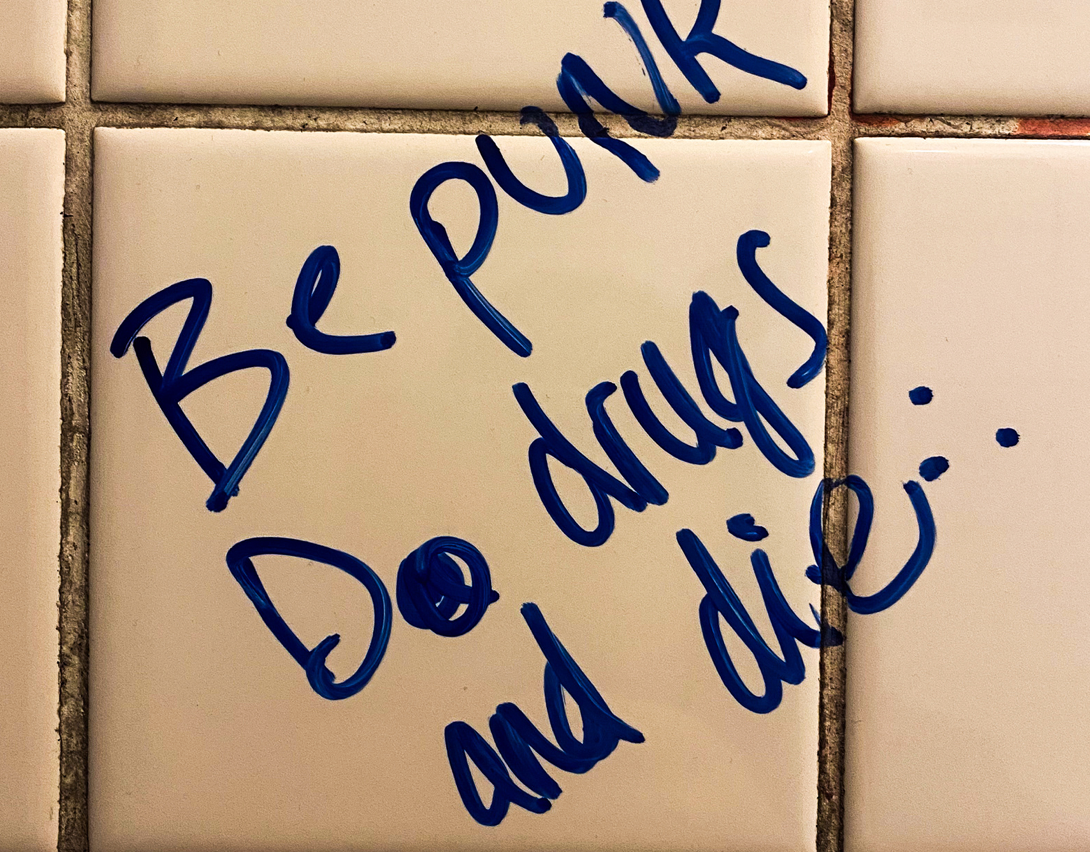 Be PUNK
Do drugs
and die...